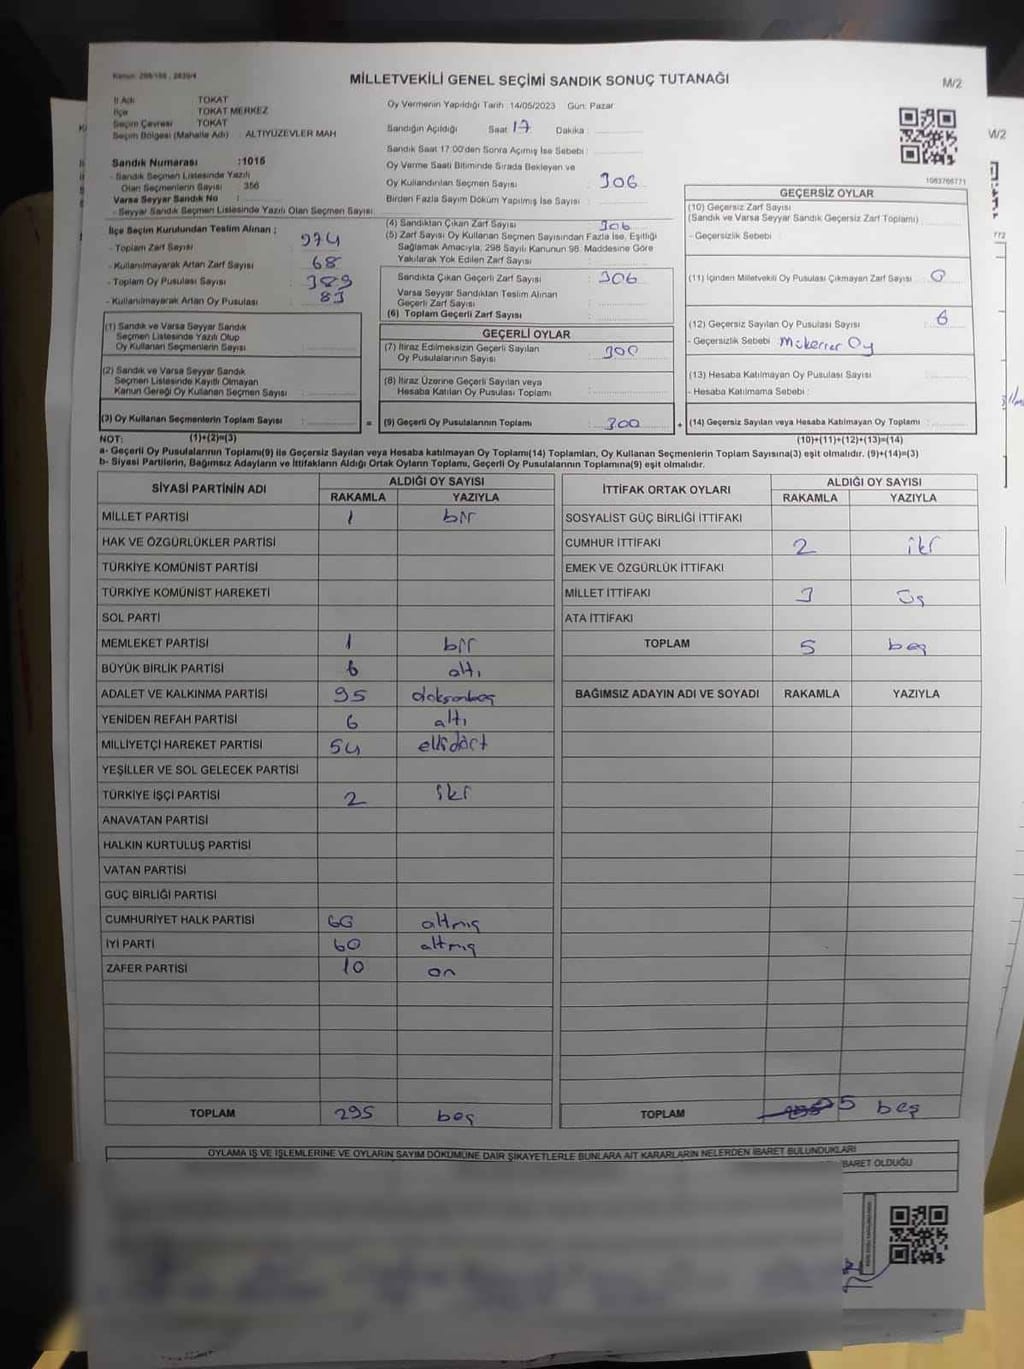 Kanun: 298/105 , 2839/4
MİLLETVEKİLİ GENEL SEÇİMİ SANDIK SONUÇ TUTANAĞI
M/2
İl Adı TOKAT
İlçe TOKAT MERKEZ
Seçim Çevresi TOKAT
Seçim Bölgesi (Mahalle Adı) : ALTIYÜZEVLER MAH
Sandık Numarası :1016
- Sandık Seçmen Listesinde Yazılı
Olan Seçmenlerin Sayısı 356
Varsa Seyyar Sandık No :
- Seyyar Sandık Seçmen Listesinde Yazılı Olan Seçmen Sayısı
İlçe Seçim Kurulundan Teslim Alınan ;
- Toplam Zarf Sayısı 374
- Kullanılmayarak Artan Zarf Sayısı 68
- Toplam Oy Pusulası Sayısı 389
- Kullanılmayarak Artan Oy Pusulası 83
(1) Sandık ve Varsa Seyyar Sandık
Seçmen Listesinde Yazılı Olup
Oy Kullanan Seçmenlerin Sayısı
(2) Sandık ve Varsa Seyyar Sandık
Seçmen Listesinde Kayıtlı Olmayan
Kanun Gereği Oy Kullanan Seçmen Sayısı
(3) Oy Kullanan Seçmenlerin Toplam Sayısı :
Oy Vermenin Yapıldığı Tarih :14/05/2023 Gün: Pazar
Sandığın Açıldığı Saat 17 Dakika :
Sandık Saat 17:00'den Sonra Açılmış İse Sebebi :
Oy Verme Saati Bitiminde Sırada Bekleyen ve
Oy Kullandırılan Seçmen Sayısı 306
Birden Fazla Sayım Döküm Yapılmış İse Sayısı :
(4) Sandıktan Çıkan Zarf Sayısı 306
(5) Zarf Sayısı Oy Kullanan Seçmen Sayısından Fazla İse, Eşitliği
Sağlamak Amacıyla, 298 Sayılı Kanunun 98. Maddesine Göre
Yakılarak Yok Edilen Zarf Sayısı
Sandıkta Çıkan Geçerli Zarf Sayısı : 306
Varsa Seyyar Sandıktan Teslim Alınan
Geçerli Zarf Sayısı
(6) Toplam Geçerli Zarf Sayısı
GEÇERLİ OYLAR
(7) İtiraz Edilmeksizin Geçerli Sayılan
Oy Pusulalarının Sayısı 300
(8) İtiraz Üzerine Geçerli Sayılan veya
Hesaba Katılan Oy Pusulası Toplamı
= (9) Geçerli Oy Pusulalarının Toplamı : 300
1083766771
GEÇERSİZ OYLAR
(10) Geçersiz Zarf Sayısı
(Sandık ve Varsa Seyyar Sandık Geçersiz Zarf Toplamı)
- Geçersizlik Sebebi
(11) İçinden Milletvekili Oy Pusulası Çıkmayan Zarf Sayısı 0
(12) Geçersiz Sayılan Oy Pusulası Sayısı 6
- Geçersizlik Sebebi Mükerrer Oy
(13) Hesaba Katılmayan Oy Pusulası Sayısı
- Hesaba Katılmama Sebebi
+ (14) Geçersiz Sayılan veya Hesaba Katılmayan Oy Toplamı
NOT: (1)+(2)=(3) (10)+(11)+(12)+(13)=(14)
a- Geçerli Oy Pusulalarının Toplamı(9) ile Geçersiz Sayılan veya Hesaba katılmayan Oy Toplamı(14) Toplamları, Oy Kullanan Seçmenlerin Toplam Sayısına(3) eşit olmalıdır. (9)+(14)=(3)
b- Siyasi Partilerin, Bağımsız Adayların ve İttifakların Aldığı Ortak Oyların Toplamı, Geçerli Oy Pusulalarının Toplamına(9) eşit olmalıdır.
SİYASİ PARTİNİN ADI ALDIĞI OY SAYISI
RAKAMLA YAZIYLA
MİLLET PARTİSİ 1 bir
HAK VE ÖZGÜRLÜKLER PARTİSİ
TÜRKİYE KOMÜNİST PARTİSİ
TÜRKİYE KOMÜNİST HAREKETİ
SOL PARTİ
MEMLEKET PARTİSİ 1 bir
BÜYÜK BİRLİK PARTİSİ 6 altı
ADALET VE KALKINMA PARTİSİ 95 doksanbeş
YENİDEN REFAH PARTİSİ 6 altı
MİLLİYETÇİ HAREKET PARTİSİ 54 ellidört
YEŞİLLER VE SOL GELECEK PARTİSİ
TÜRKİYE İŞÇİ PARTİSİ 2 iki
ANAVATAN PARTİSİ
HALKIN KURTULUŞ PARTİSİ
VATAN PARTİSİ
GÜÇ BİRLİĞİ PARTİSİ
CUMHURİYET HALK PARTİSİ 60 altmış
İYİ PARTİ 60 altmış
ZAFER PARTİSİ 10 on
TOPLAM 295 beş
İTTİFAK ORTAK OYLARI ALDIĞI OY SAYISI
RAKAMLA YAZIYLA
SOSYALİST GÜÇ BİRLİĞİ İTTİFAKI
CUMHUR İTTİFAKI 2 iki
EMEK VE ÖZGÜRLÜK İTTİFAKI
MİLLET İTTİFAKI 3 üç
ATA İTTİFAKI
TOPLAM 5 beş
BAĞIMSIZ ADAYIN ADI VE SOYADI RAKAMLA YAZIYLA
TOPLAM 5 beş
OYLAMA İŞ VE İŞLEMLERİNE VE OYLARIN SAYIM DÖKÜMÜNE DAİR ŞİKAYETLERLE BUNLARA AİT KARARLARIN NELERDEN İBARET BULUNDUKLARI
BARET OLDUĞU